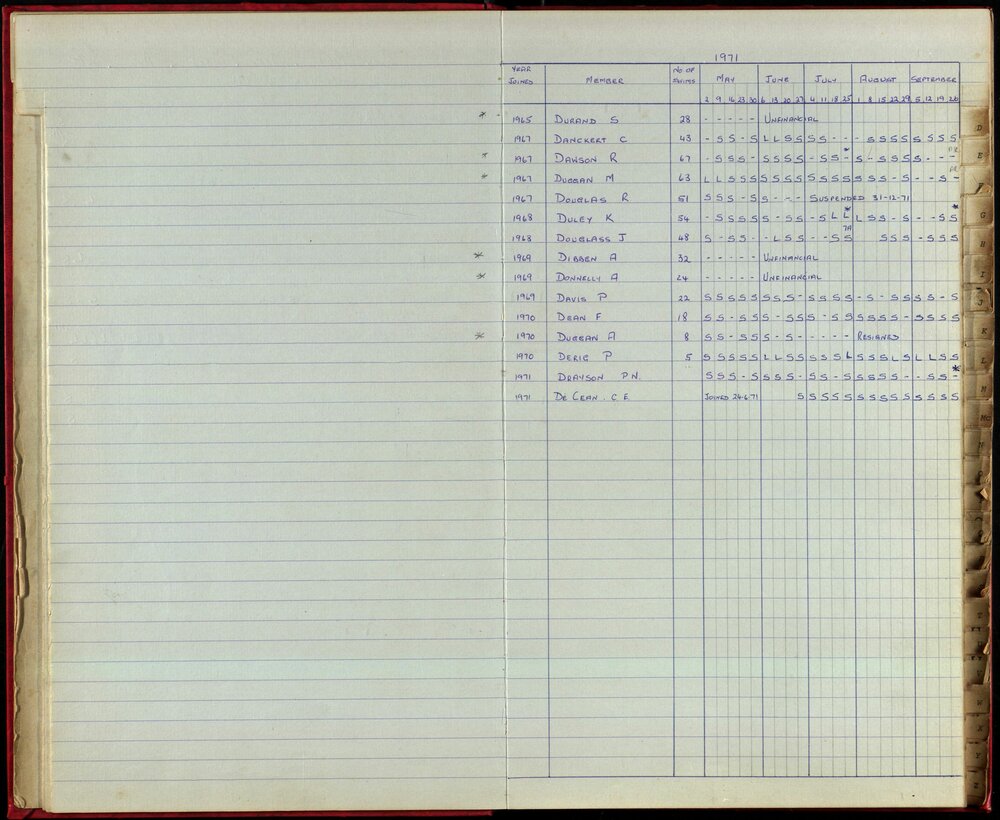 1971
YEAR JOINED MEMBER NO OF SWIMS MAY JUNE JULY AUGUST SEPTEMBER
2 9 16 23 30 6 13 20 27 4 11 18 25 1 8 15 22 29 5 12 19 26
* 1965 DURAND S 28 - - - - - UNFINANCIAL
1967 DANCKERT C 43 - S S - S L L S S S S - - - S S S S S S S S
* 1967 DAWSON R 67 - S S S - S S S S - S S - S - S S S S - - -
* 1967 DUGGAN M 63 L L S S S S S S S S S S S S S S - S - - S -
1967 DOUGLAS R 51 S S S - S S - - - SUSPENDED 31-12-71
1968 DULEY K 54 - S S S S S - S S - S L L L S S - S - - S S
1968 DOUGLASS J 48 S - S S - - L S S - - S S S S S - S S S
* 1969 DIBBEN A 32 - - - - - UNFINANCIAL
* 1969 DONNELLY A 24 - - - - - UNFINANCIAL
1969 DAVIS P 22 S S S S S S S S - S S S S - S - S S S S - S
1970 DEAN F 18 S S - S S S - S S S - S S S S S S - S S S S
* 1970 DUGGAN A 8 S S - S S S - S - - - - - RESIGNED
1970 DERIG P 5 S S S S S L L S S S S S L S S S L S L L S S
1971 DRAYSON P.N. S S S - S S S S - S S - S S S S S - - S S -
1971 DE LEAN. C.E. JOINED 24.6.71 S S S S S S S S S S S S S S
D
E
F
G
H
I
J
K
L
M
MC
N
W
X
Y